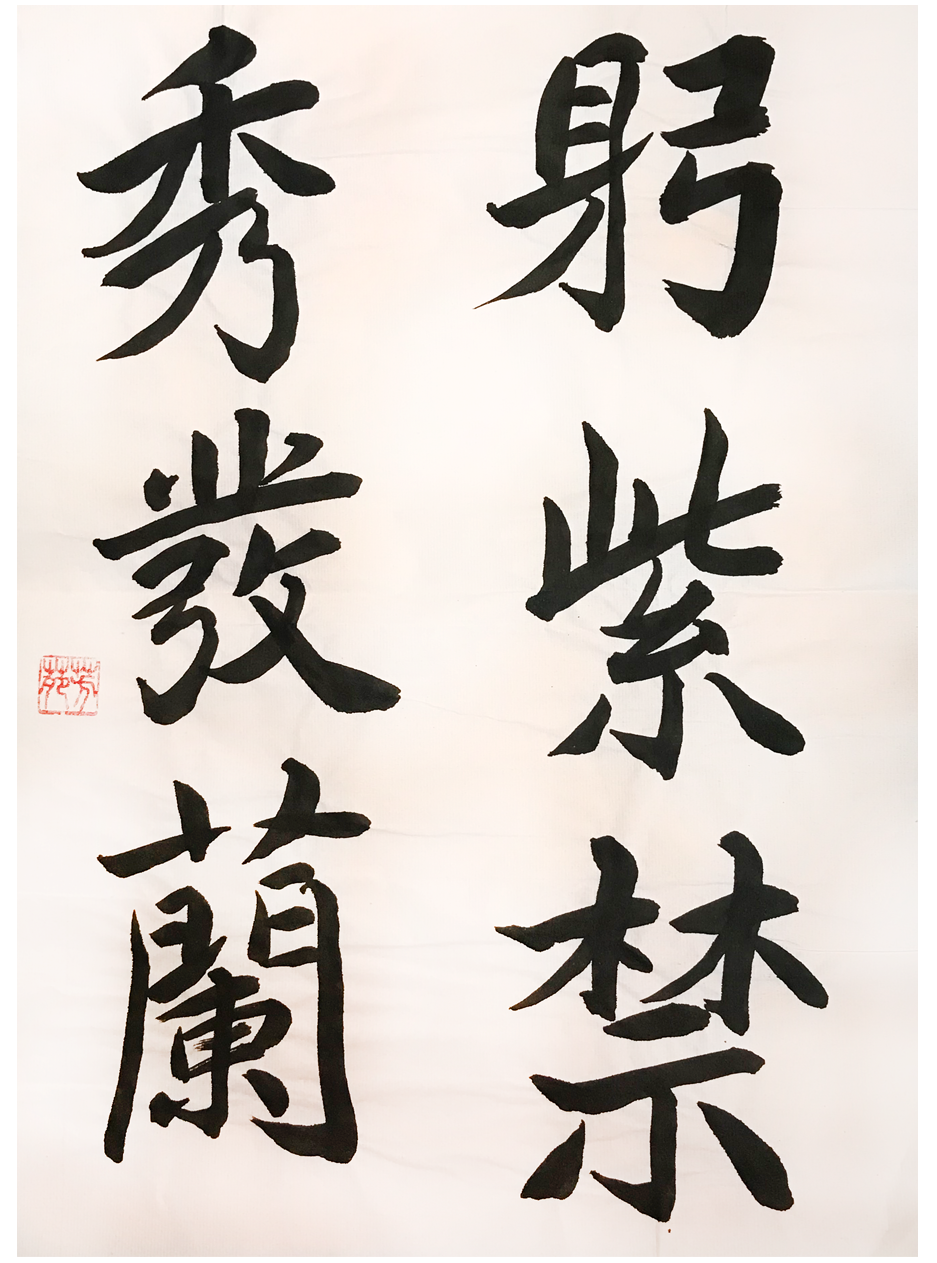 躬紫禁
秀發蘭
芳苑